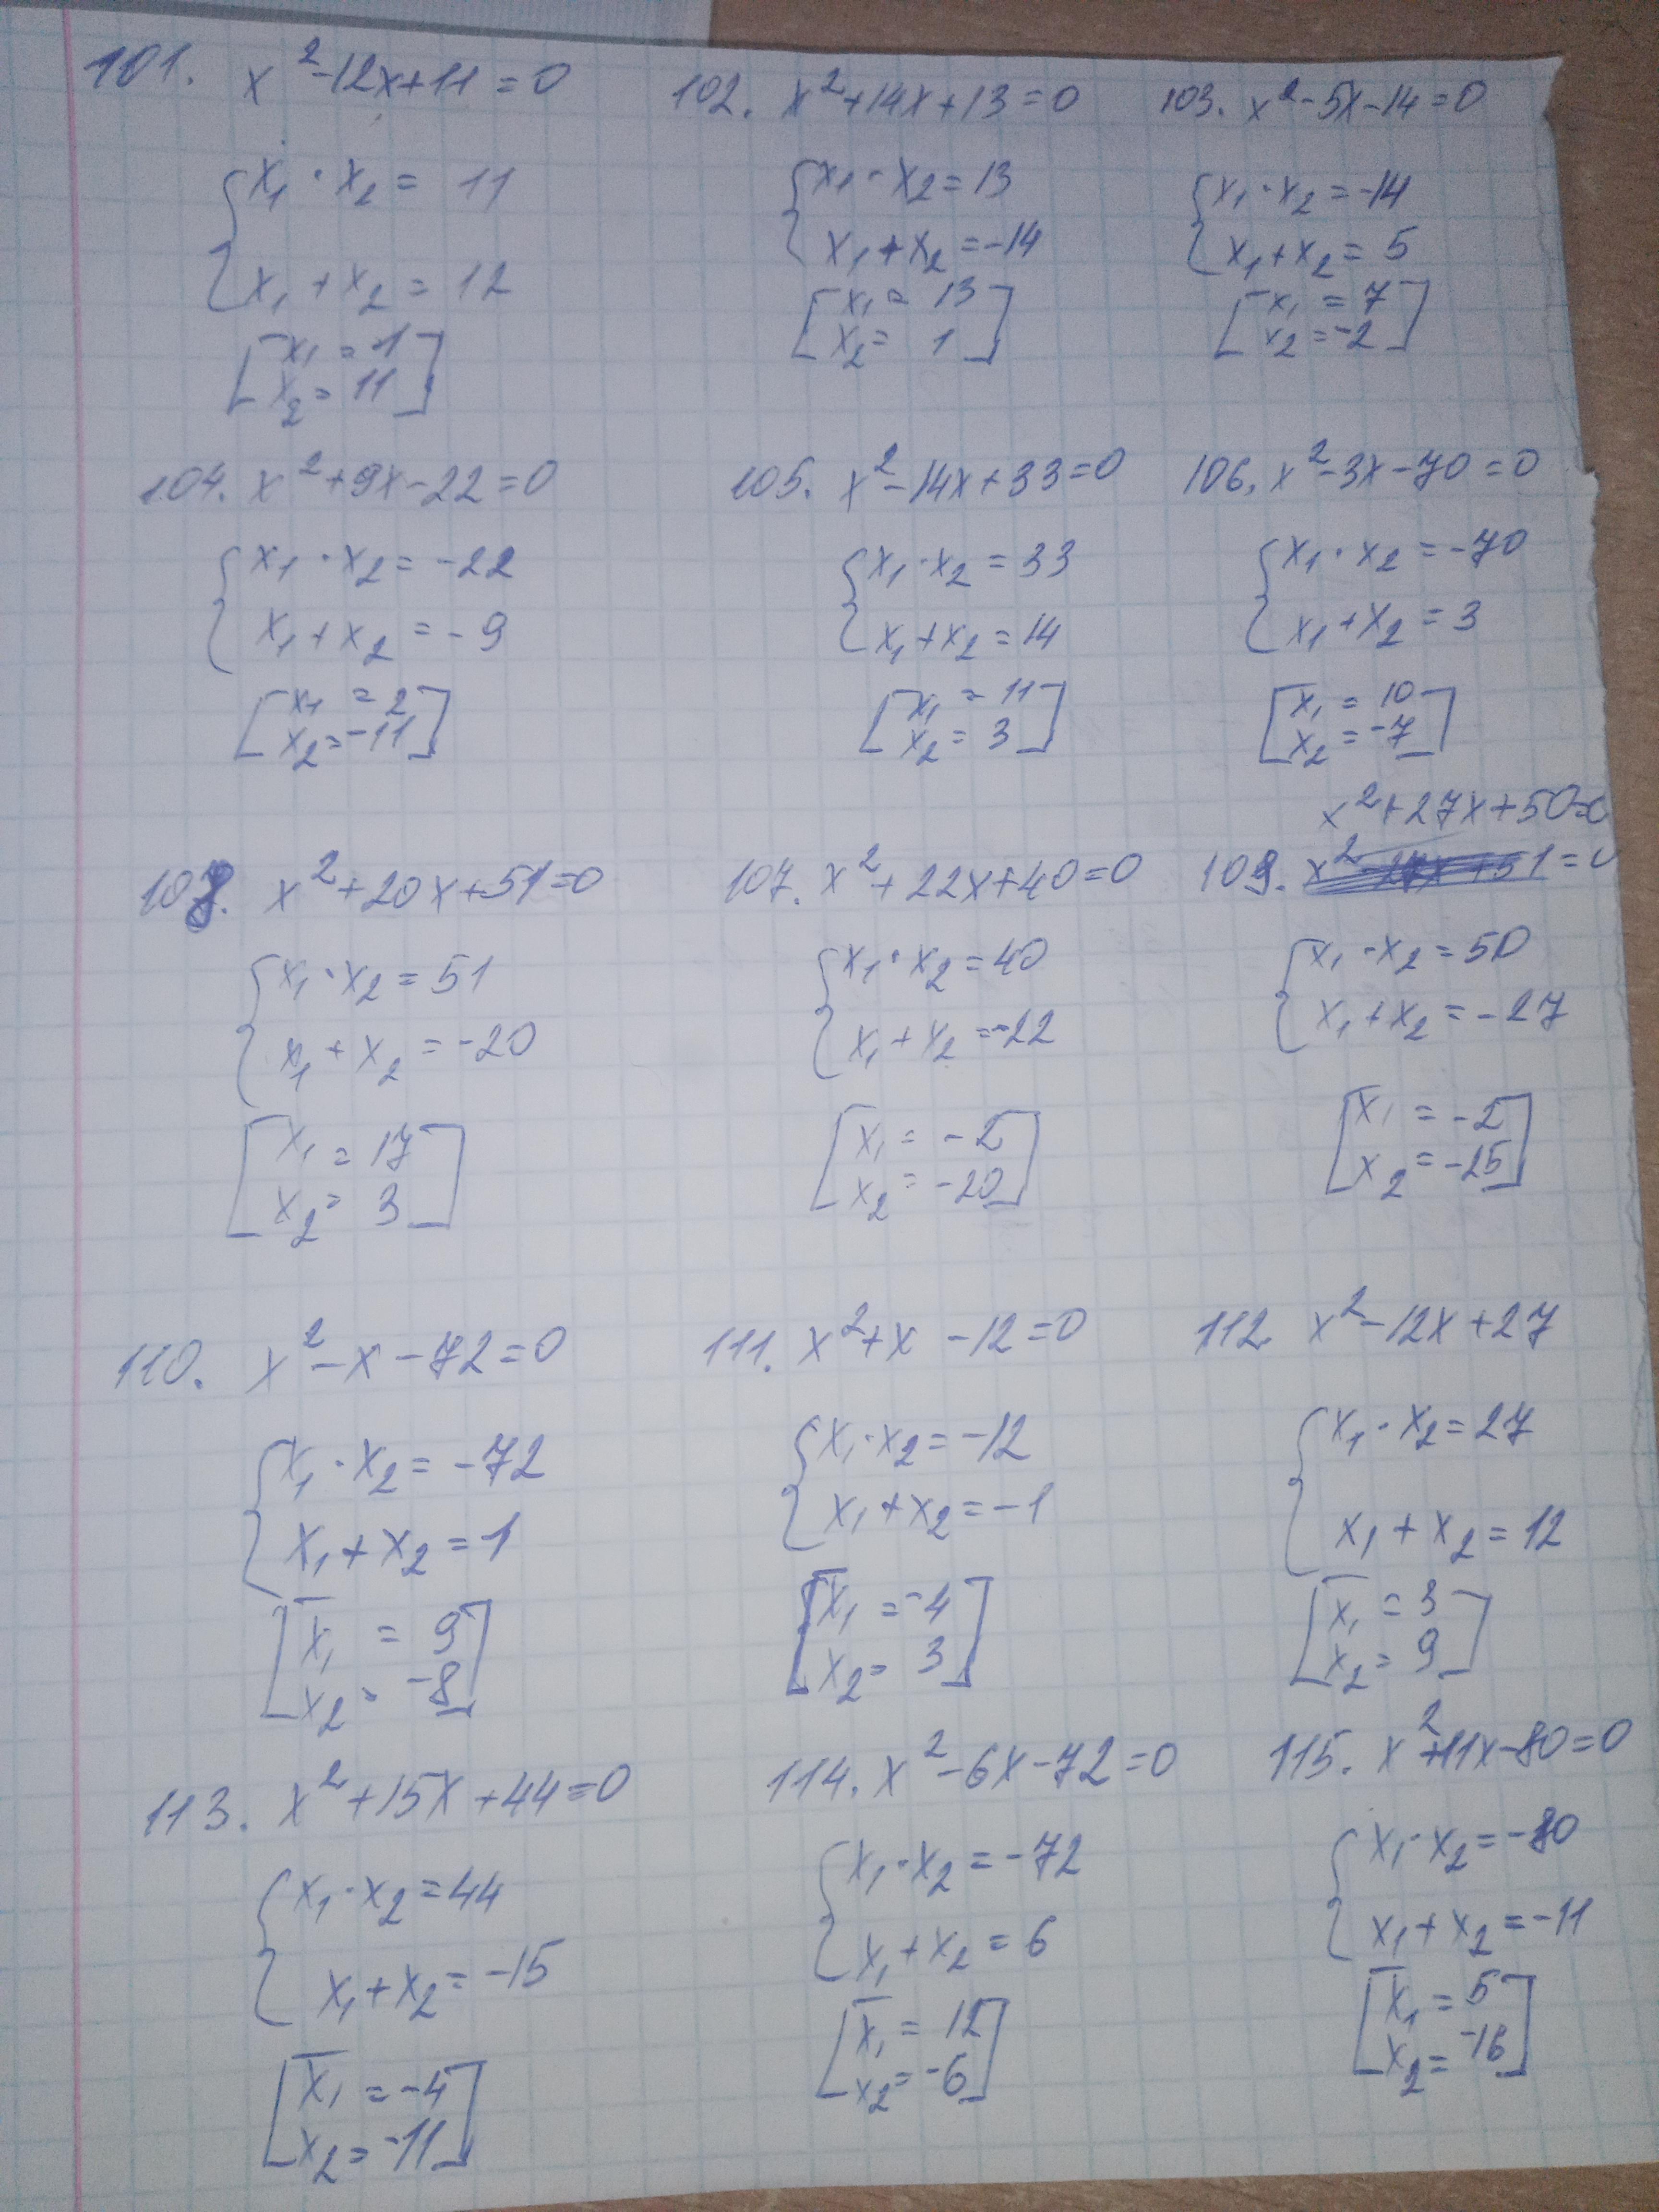 101. x² - 12x + 11 = 0
x₁ · x₂ = 11
x₁ + x₂ = 12
x₁ = 1
x₂ = 11
102. x² + 14x + 13 = 0
x₁ · x₂ = 13
x₁ + x₂ = -14
x₁ = 13
x₂ = 1
103. x² - 5x - 14 = 0
x₁ · x₂ = -14
x₁ + x₂ = 5
x₁ = 7
x₂ = -2
104. x² + 9x - 22 = 0
x₁ · x₂ = -22
x₁ + x₂ = -9
x₁ = 2
x₂ = -11
105. x² - 14x + 33 = 0
x₁ · x₂ = 33
x₁ + x₂ = 14
x₁ = 11
x₂ = 3
106. x² - 3x - 70 = 0
x₁ · x₂ = -70
x₁ + x₂ = 3
x₁ = 10
x₂ = -7
108. x² + 20x + 51 = 0
x₁ · x₂ = 51
x₁ + x₂ = -20
x₁ = 17
x₂ = 3
107. x² + 22x + 40 = 0
x₁ · x₂ = 40
x₁ + x₂ = -22
x₁ = -2
x₂ = -20
x² + 27x + 50 = 0
109.
x₁ · x₂ = 50
x₁ + x₂ = -27
x₁ = -2
x₂ = -25
110. x² - x - 72 = 0
x₁ · x₂ = -72
x₁ + x₂ = 1
x₁ = 9
x₂ = -8
111. x² + x - 12 = 0
x₁ · x₂ = -12
x₁ + x₂ = -1
x₁ = -4
x₂ = 3
112 x² - 12x + 27
x₁ · x₂ = 27
x₁ + x₂ = 12
x₁ = 3
x₂ = 9
113. x² + 15x + 44 = 0
x₁ · x₂ = 44
x₁ + x₂ = -15
x₁ = -4
x₂ = -11
114. x² - 6x - 72 = 0
x₁ · x₂ = -72
x₁ + x₂ = 6
x₁ = 12
x₂ = -6
115. x² + 11x - 80 = 0
x₁ · x₂ = -80
x₁ + x₂ = -11
x₁ = 5
x₂ = -16